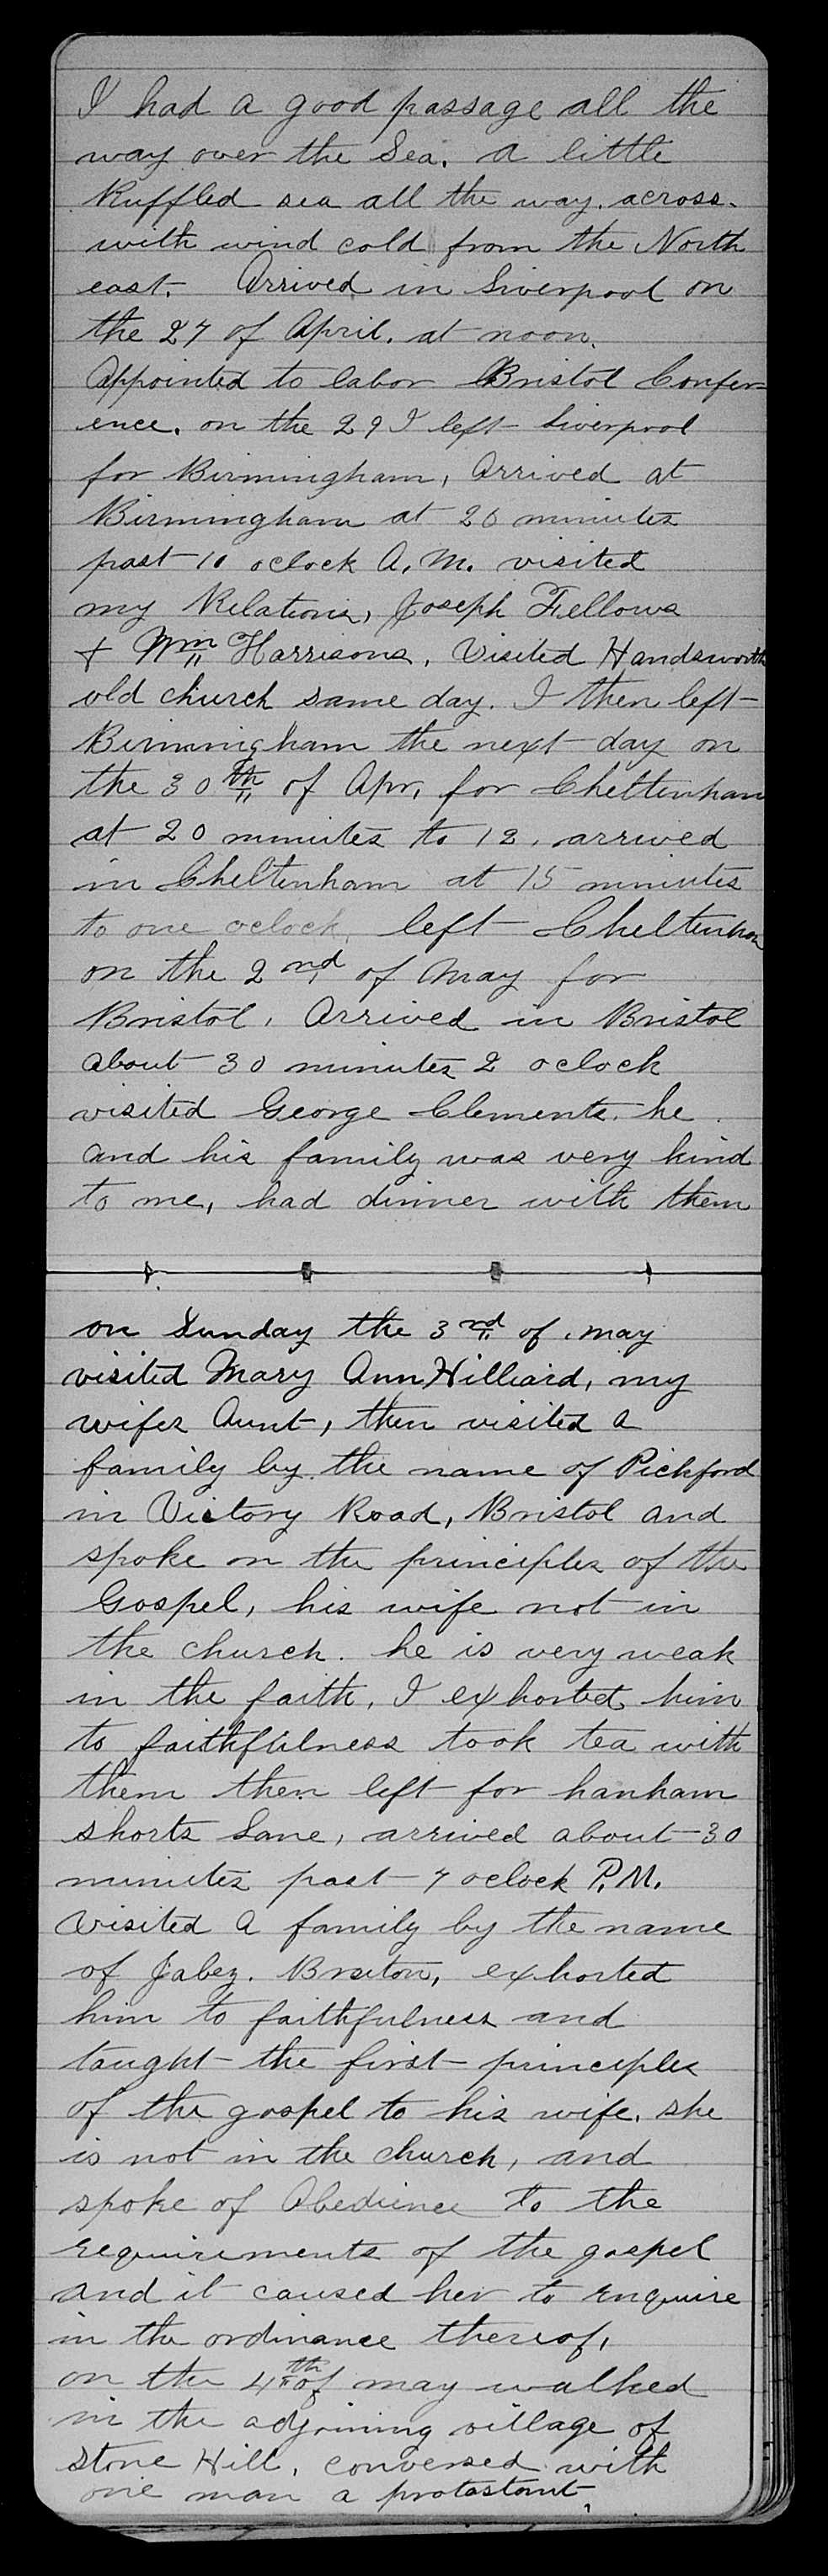 I had a good passage all the
way over the Sea. a little
Ruffled sea all the way. across.
with wind cold from the North
east. Arrived in Liverpool on
the 27 of April. at noon.
Appointed to labor Bristol Confer=
ence. on the 29 I left Liverpool
for Birmingham, Arrived at
Birmingham at 20 minutes
past 10 oclock A.M. visited
my Relations, Joseph Fellows
& Wm Harrisons. Visited Handsworth
old church same day. I then left
Birmingham the next day on
the 30th of Apr. for Cheltenham
at 20 minutes to 12. arrived
in Cheltenham at 15 minutes
to one oclock. left Cheltenham
on the 2nd of May for
Bristol. Arrived in Bristol
about 30 minutes 2 oclock
visited George Clements. he
and his family was very kind
to me, had dinner with them
on Sunday the 3rd of may
visited Mary Ann Hilliard, my
wifes Aunt, then visited a
family by the name of Pickford
in Victory Road, Bristol and
spoke on the principles of the
Gospel, his wife not in
the church. he is very weak
in the faith, I exhorted him
to faithfulness took tea with
them then left for hanham
shorts Lane, arrived about 30
minutes past 7 oclock P.M.
visited a family by the name
of Jabez. Bruton, exhorted
him to faithfulness and
taught the first principles
of the gospel to his wife. she
is not in the church, and
spoke of Obedience to the
requirements of the gospel
and it caused her to Enquire
in the ordinance thereof,
on the 4th of may walked
in the adjoining village of
stone Hill, conversed with
one man a protastant.